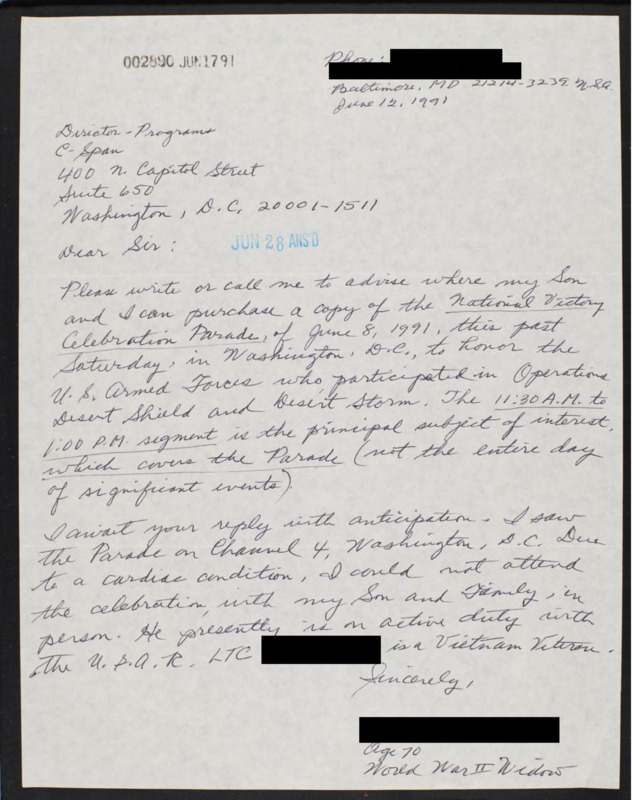 002890 JUN1791
Phone:
Baltimore, MD 21214-3239, U.S.A.
June 12, 1991
Director-Programs
C-Span
400 N. Capitol Street
Suite 650
Washington, D.C. 20001-1511
Dear Sir:
JUN 28 ANS'D
Please write or call me to advise where my Son
and I can purchase a copy of the National Victory
Celebration Parade, of June 8, 1991, this past
Saturday, in Washington, D.C., to honor the
U.S. Armed Forces who participated in Operations
Desert Shield and Desert Storm. The 11:30 A.M. to
1:00 P.M. segment is the principal subject of interest,
which covers the Parade (not the entire day
of significant events).
I await your reply with anticipation. I saw
the Parade on Channel 4, Washington, D.C. Due
to a cardiac condition, I could not attend
the celebration, with my Son and Family, in
person. He presently is on active duty with
the U.S.A.R. LTC is a Vietnam Veteran.
Sincerely,
Age 70
World War II Widow